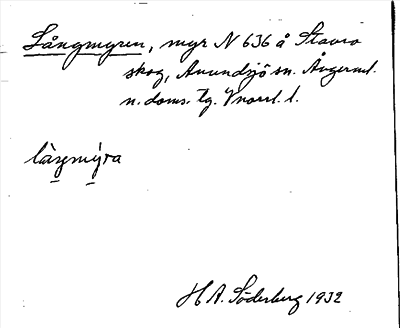 Långmyren, myr N 636 å Stavro
skog, Anundsjö sn. Ångerml.
n. doms. tg. Vnorrl. l.
làŋmy̆ra
H A. Söderberg 1932